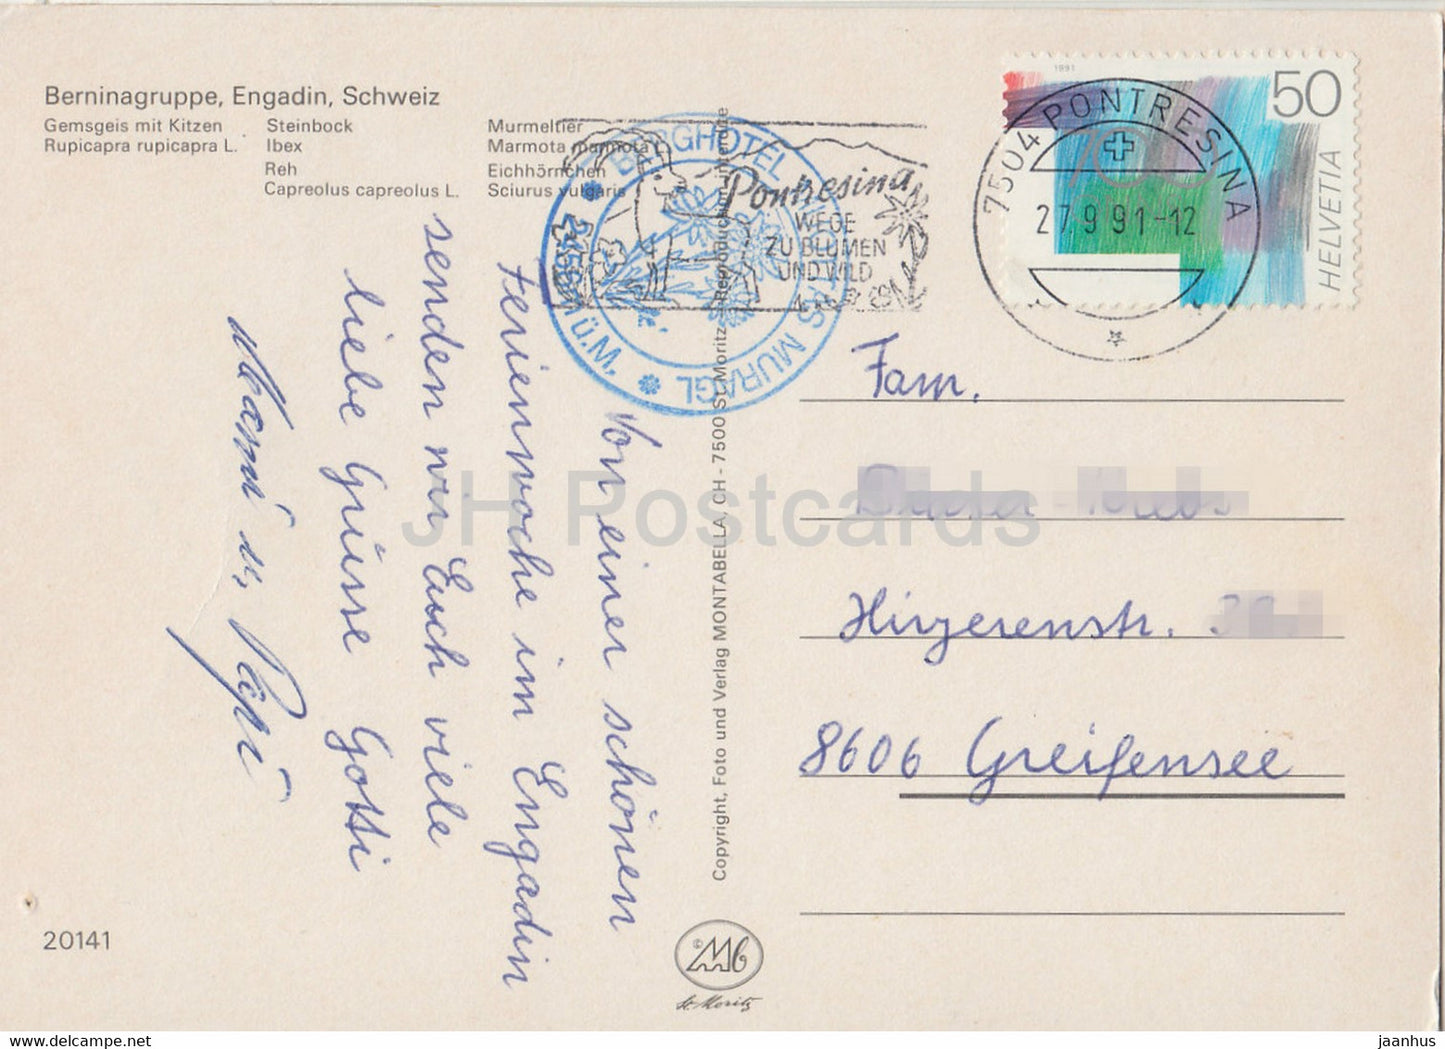 Berninagruppe, Engadin, Schweiz
Gemsgeis mit Kitzen
Rupicapra rupicapra L.
Steinbock
Ibex
Reh
Capreolus capreolus L.
Murmeltier
Marmota marmota L.
Eichhörnchen
Sciurus vulgaris
BERGHOTEL MURAGL
ü.M.
Pontresina
WEGE
ZU BLUMEN
UND WILD
7504 PONTRESINA
27.9.91-12
1991
700
50
HELVETIA
Von einer schönen
Ferienwoche im Engadin
senden wir Euch viele
liebe Grüsse Gotti
Mami u. Papi
Copyright, Foto und Verlag MONTABELLA, CH - 7500 St. Moritz - Reproduction interdite
Fam.
Hirzerenstr.
8606 Greifensee
JH Postcards
20141
©Mb
St. Moritz
www.delcampe.net
jaanhus